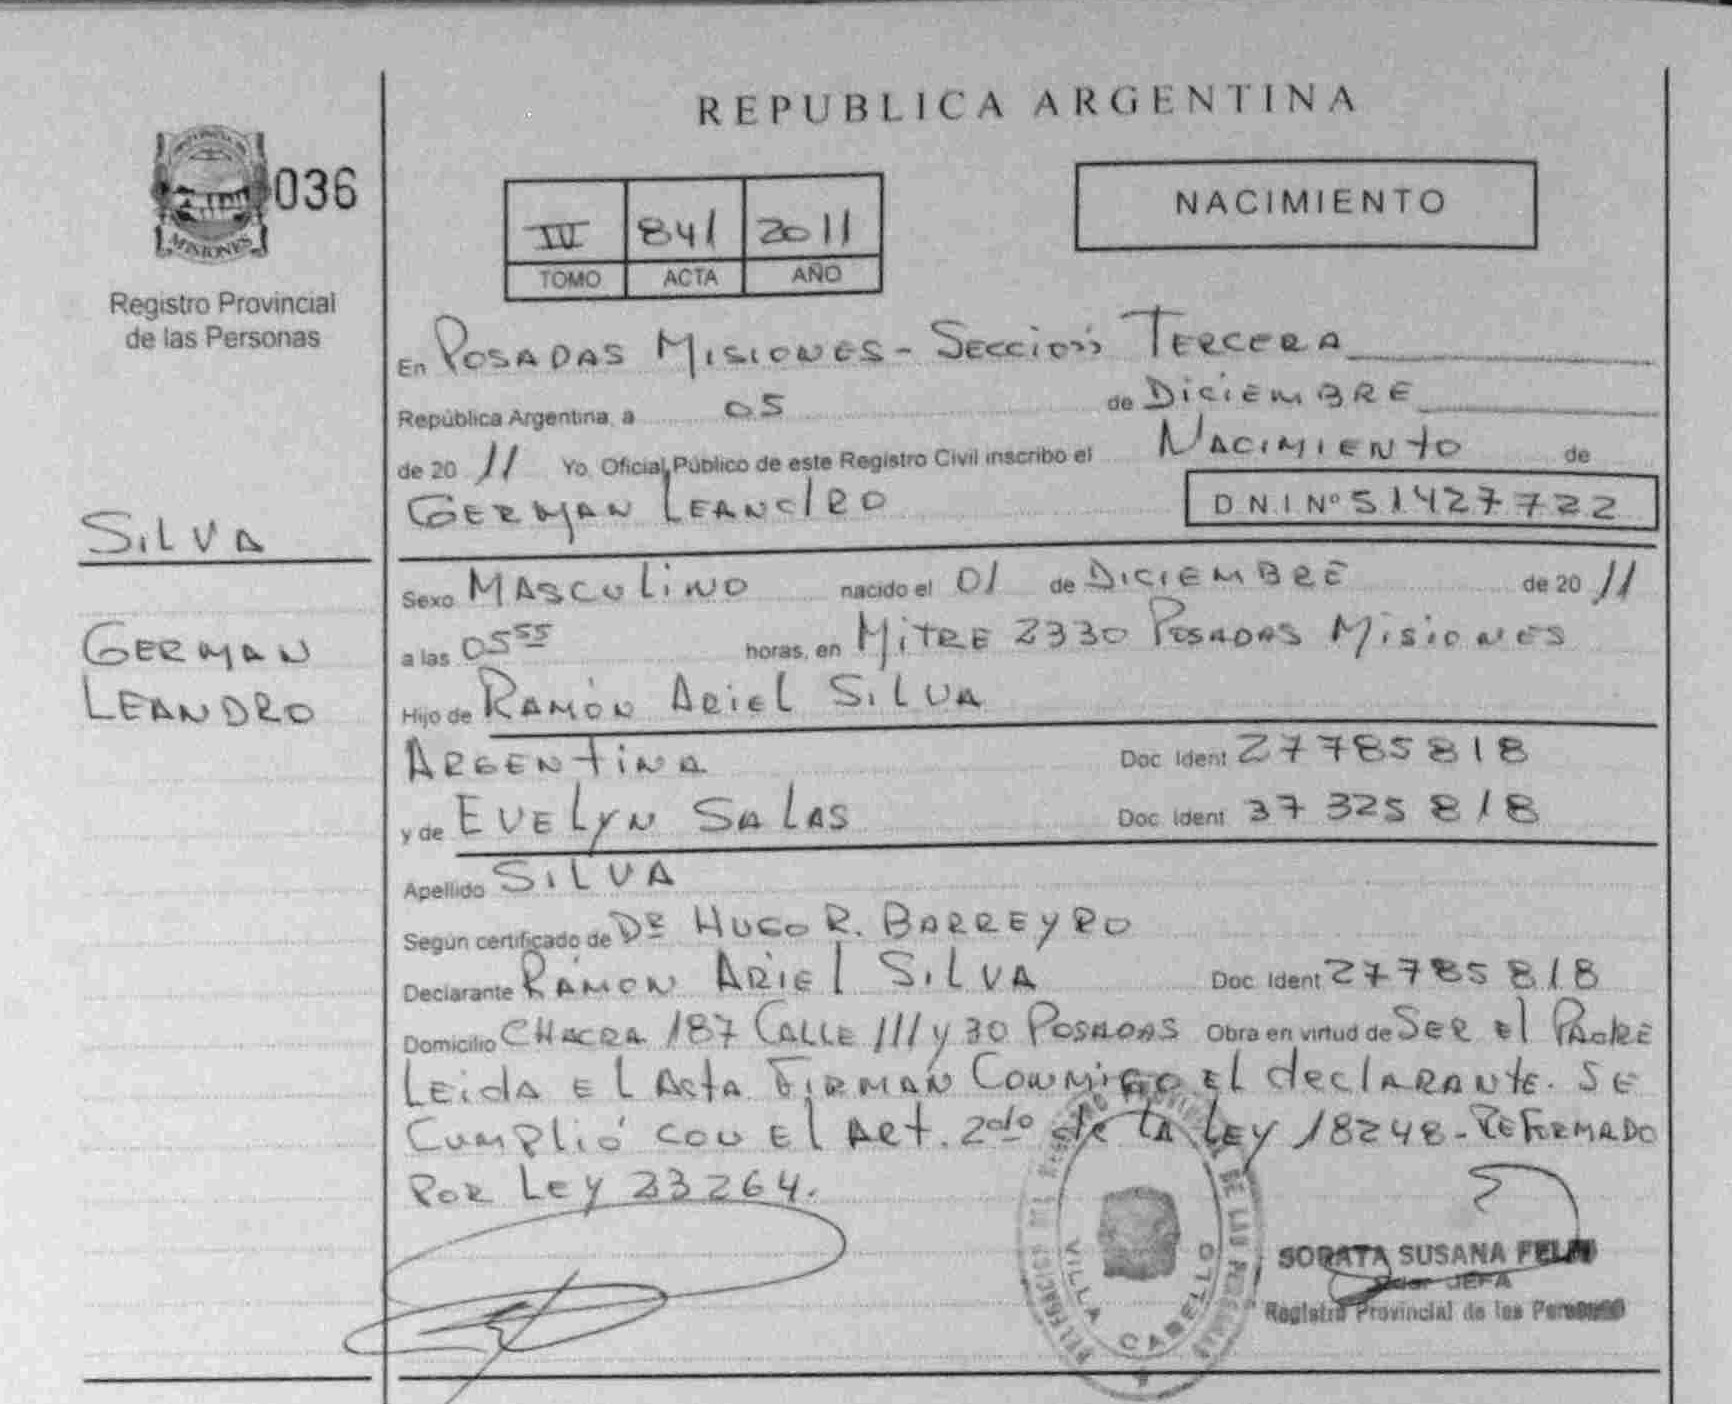 REPUBLICA ARGENTINA
036
MISIONES
Registro Provincial
de las Personas
IV 841 2011
TOMO ACTA AÑO
NACIMIENTO
En POSADAS MISIONES - SECCIÓN TERCERA
República Argentina, a 05 de DICIEMBRE
de 20 11 Yo, Oficial Público de este Registro Civil inscribo el NACIMIENTO de
GERMAN LEANdRO D.N.I Nº 51427722
SILVA
GERMAN
LEANDRO
Sexo MASCULINO nacido el 01 de DICIEMBRE de 20 11
a las 05 55 horas, en MITRE 2330 POSADAS MISIONES
Hijo de RAMÓN ARIEL SILVA
ARGENTINA Doc. Ident 27785818
y de EVELYN SALAS Doc. Ident 37325818
Apellido SILVA
Según certificado de DR HUGO R. BARREYRO
Declarante RAMON ARIEL SILVA Doc. Ident 27785818
Domicilio CHACRA 187 CALLE 111 y 30 POSADAS Obra en virtud de SER El PAdRE
LEIdA El Acta FIRMAN CONMIGO El declARANtE. SE
CUMPLIÓ CON El ARt. 2do de LA LEY 18248 - REFORMADO
POR LEY 23264.
VILLA CABELLO
SORATA SUSANA
JEFA
Registro Provincial de las Personas